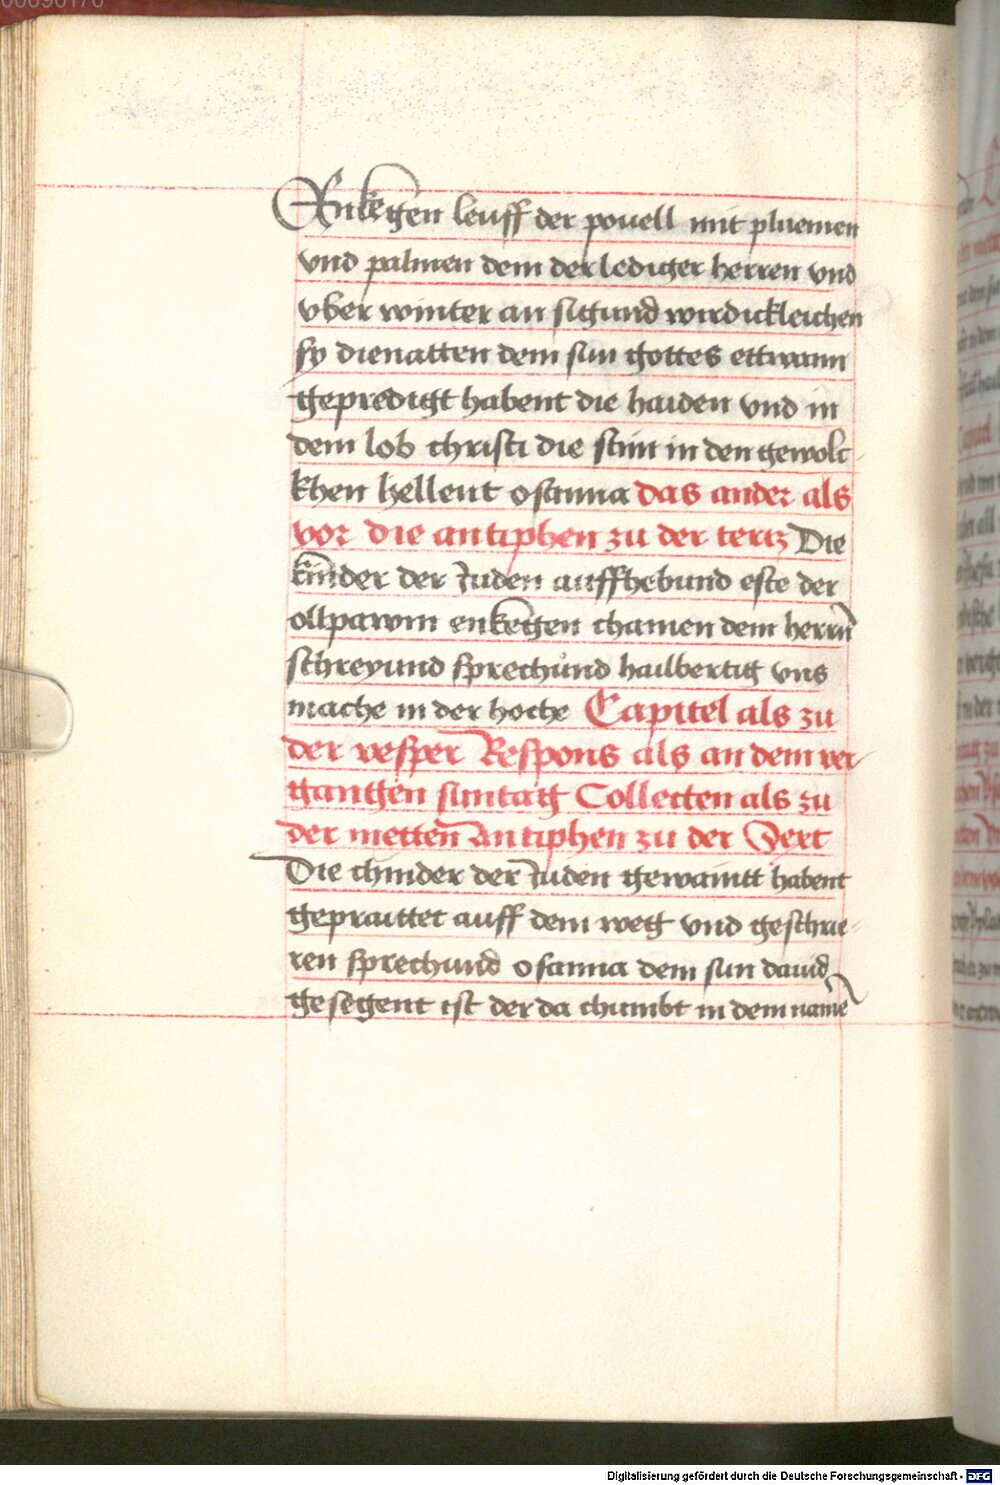 00090170
Enkegen leuff der pouell mit pluemen
vnd palmen dem der lediger herren vnd
vber winter an sigund wirdickleichen
sy dienatten dem sun gottes ettwann
gepredigt habent die haiden vnd in
dem lob christi die stim in den gewolc
khen hellent osanna das ander als
vor die antiphen zu der tercz Die
kinder der Juden auffhebund este der
ollpawm enkegen chamen dem herrn
schreyund sprechund hailbertig vns
mache in der hoche Capitel als zu
der vesper Respons als an dem ver-
gangen suntag Collecten als zu
der metten Antiphen zu der Sext
Die chinder der Juden gewanntt habent
gepraittet auff dem weg vnd geschrie-
ren sprechund osanna dem sun dauid
gesegent ist der da chumbt in dem name
Digitalisierung gefördert durch die Deutsche Forschungsgemeinschaft - DFG